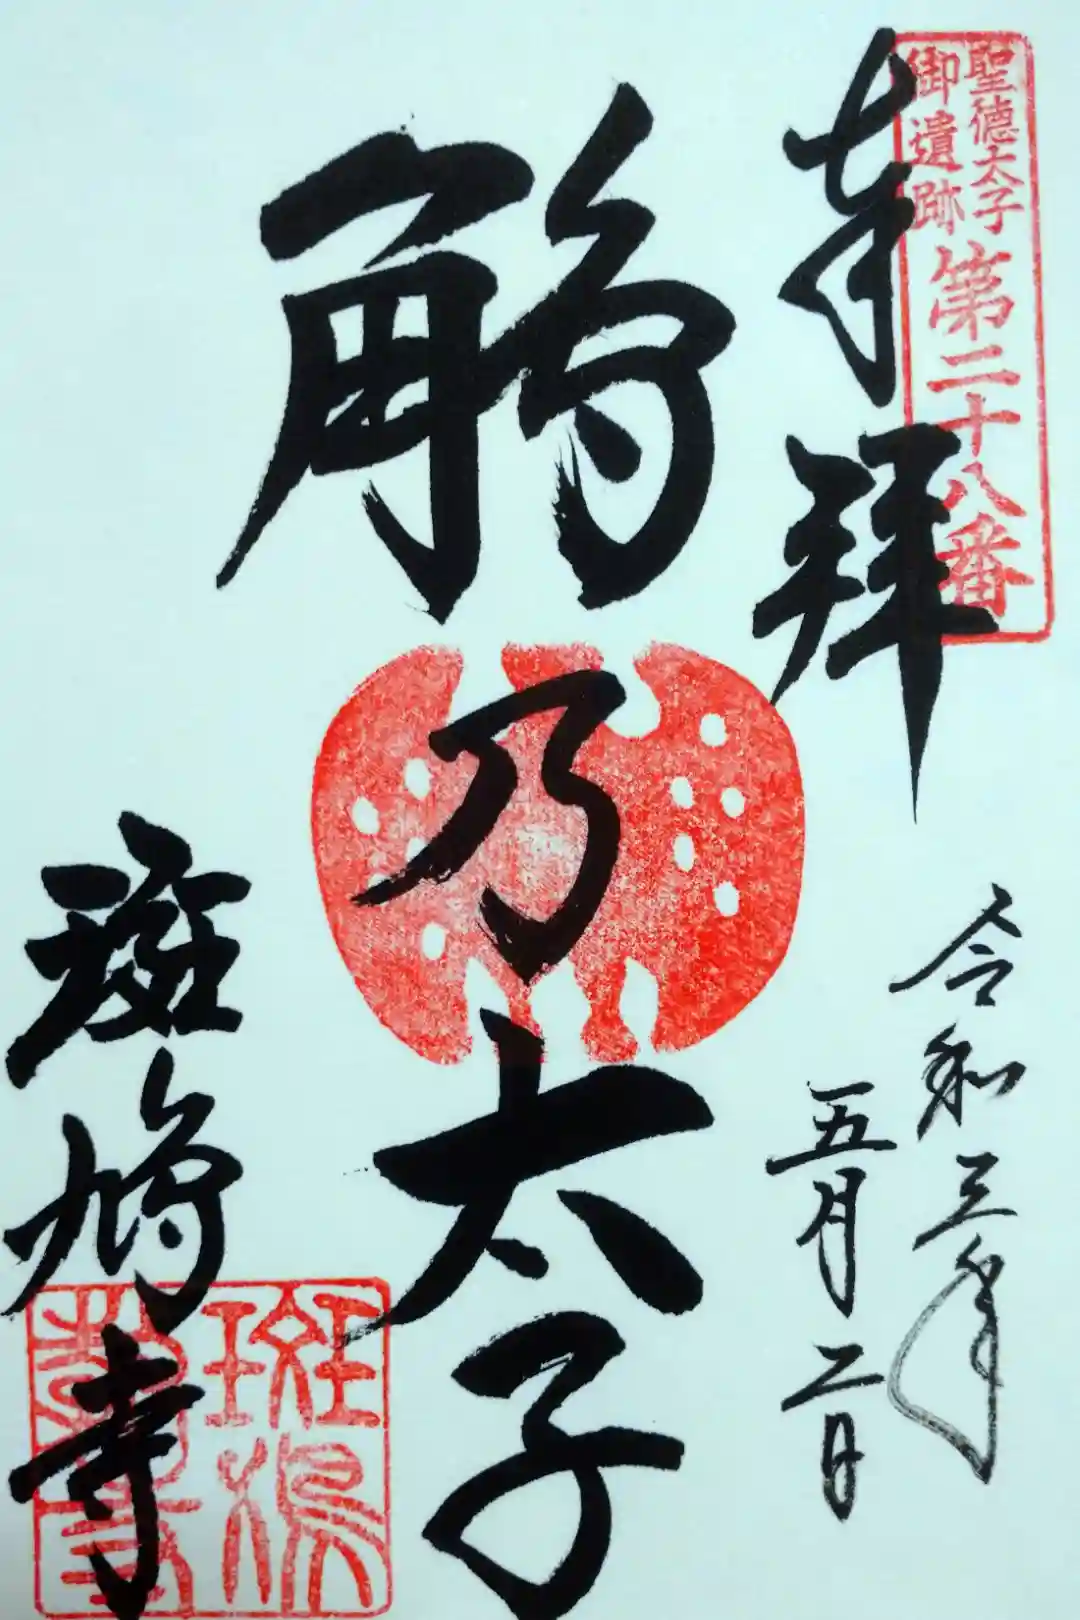 聖徳太子
御遺跡
第二十八番
奉拝
令和三年
五月二日
鵤乃太子
斑鳩寺
斑鳩